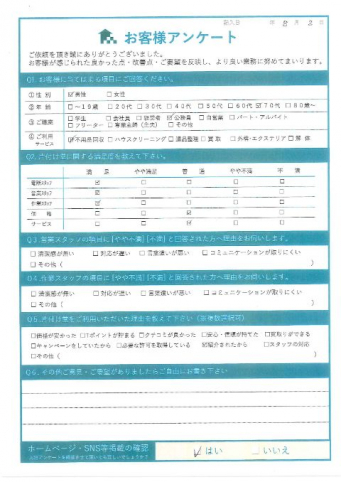 記入日 年 8 月 2 日
お客様アンケート
ご依頼を頂き誠にありがとうございました。
お客様が感じられた良かった点・改善点・ご要望を反映し、より良い業務に努めてまいります。
Q1. お客様に当てはまる項目にご回答ください。
①性 別 ☑男性 □女性
②年 齢 □~19歳 □20代 □30代 □40代 □50代 □60代 ☑70代 □80歳~
③ご職業 □学生 □会社員 □経営者 ☑公務員 □自営業 □パート・アルバイト
□フリーター □専業主婦(主夫) □その他
④ご利用サービス ☑不用品回収 □ハウスクリーニング □遺品整理 □買取 □外構・エクステリア □解体
満足 やや満足 普通 やや不満 不満
電話スタッフ ☑ □ □ □ □
営業スタッフ ☑ □ □ □ □
作業スタッフ ☑ □ □ □ □
価格 □ □ ☑ □ □
サービス □ □ ☑ □ □
Q3.営業スタッフの項目に[やや不満][不満]と回答された方へ理由をお伺いします。
□清潔感が無い □対応が遅い □言葉遣いが悪い □コミュニケーションが取りにくい
□その他( )
Q4.作業スタッフの項目に[やや不満][不満]と回答された方へ理由をお伺いします。
□清潔感が無い □対応が遅い □言葉遣いが悪い □コミュニケーションが取りにくい
□その他( )
Q5.片付け業をご利用いただいた理由を教えて下さい(複数選択可)
□価格が安かった □Tポイントが貯まる □クチコミが良かった □安心・信頼が持てた □買取りができる
□キャンペーンをしていたから □必要な許可を取得している ☑紹介されたから □スタッフの対応
□その他( )
Q6.その他ご意見・ご要望がありましたらご自由にお書き下さい
ホームページ・SNS等掲載の確認
✓はい □いいえ